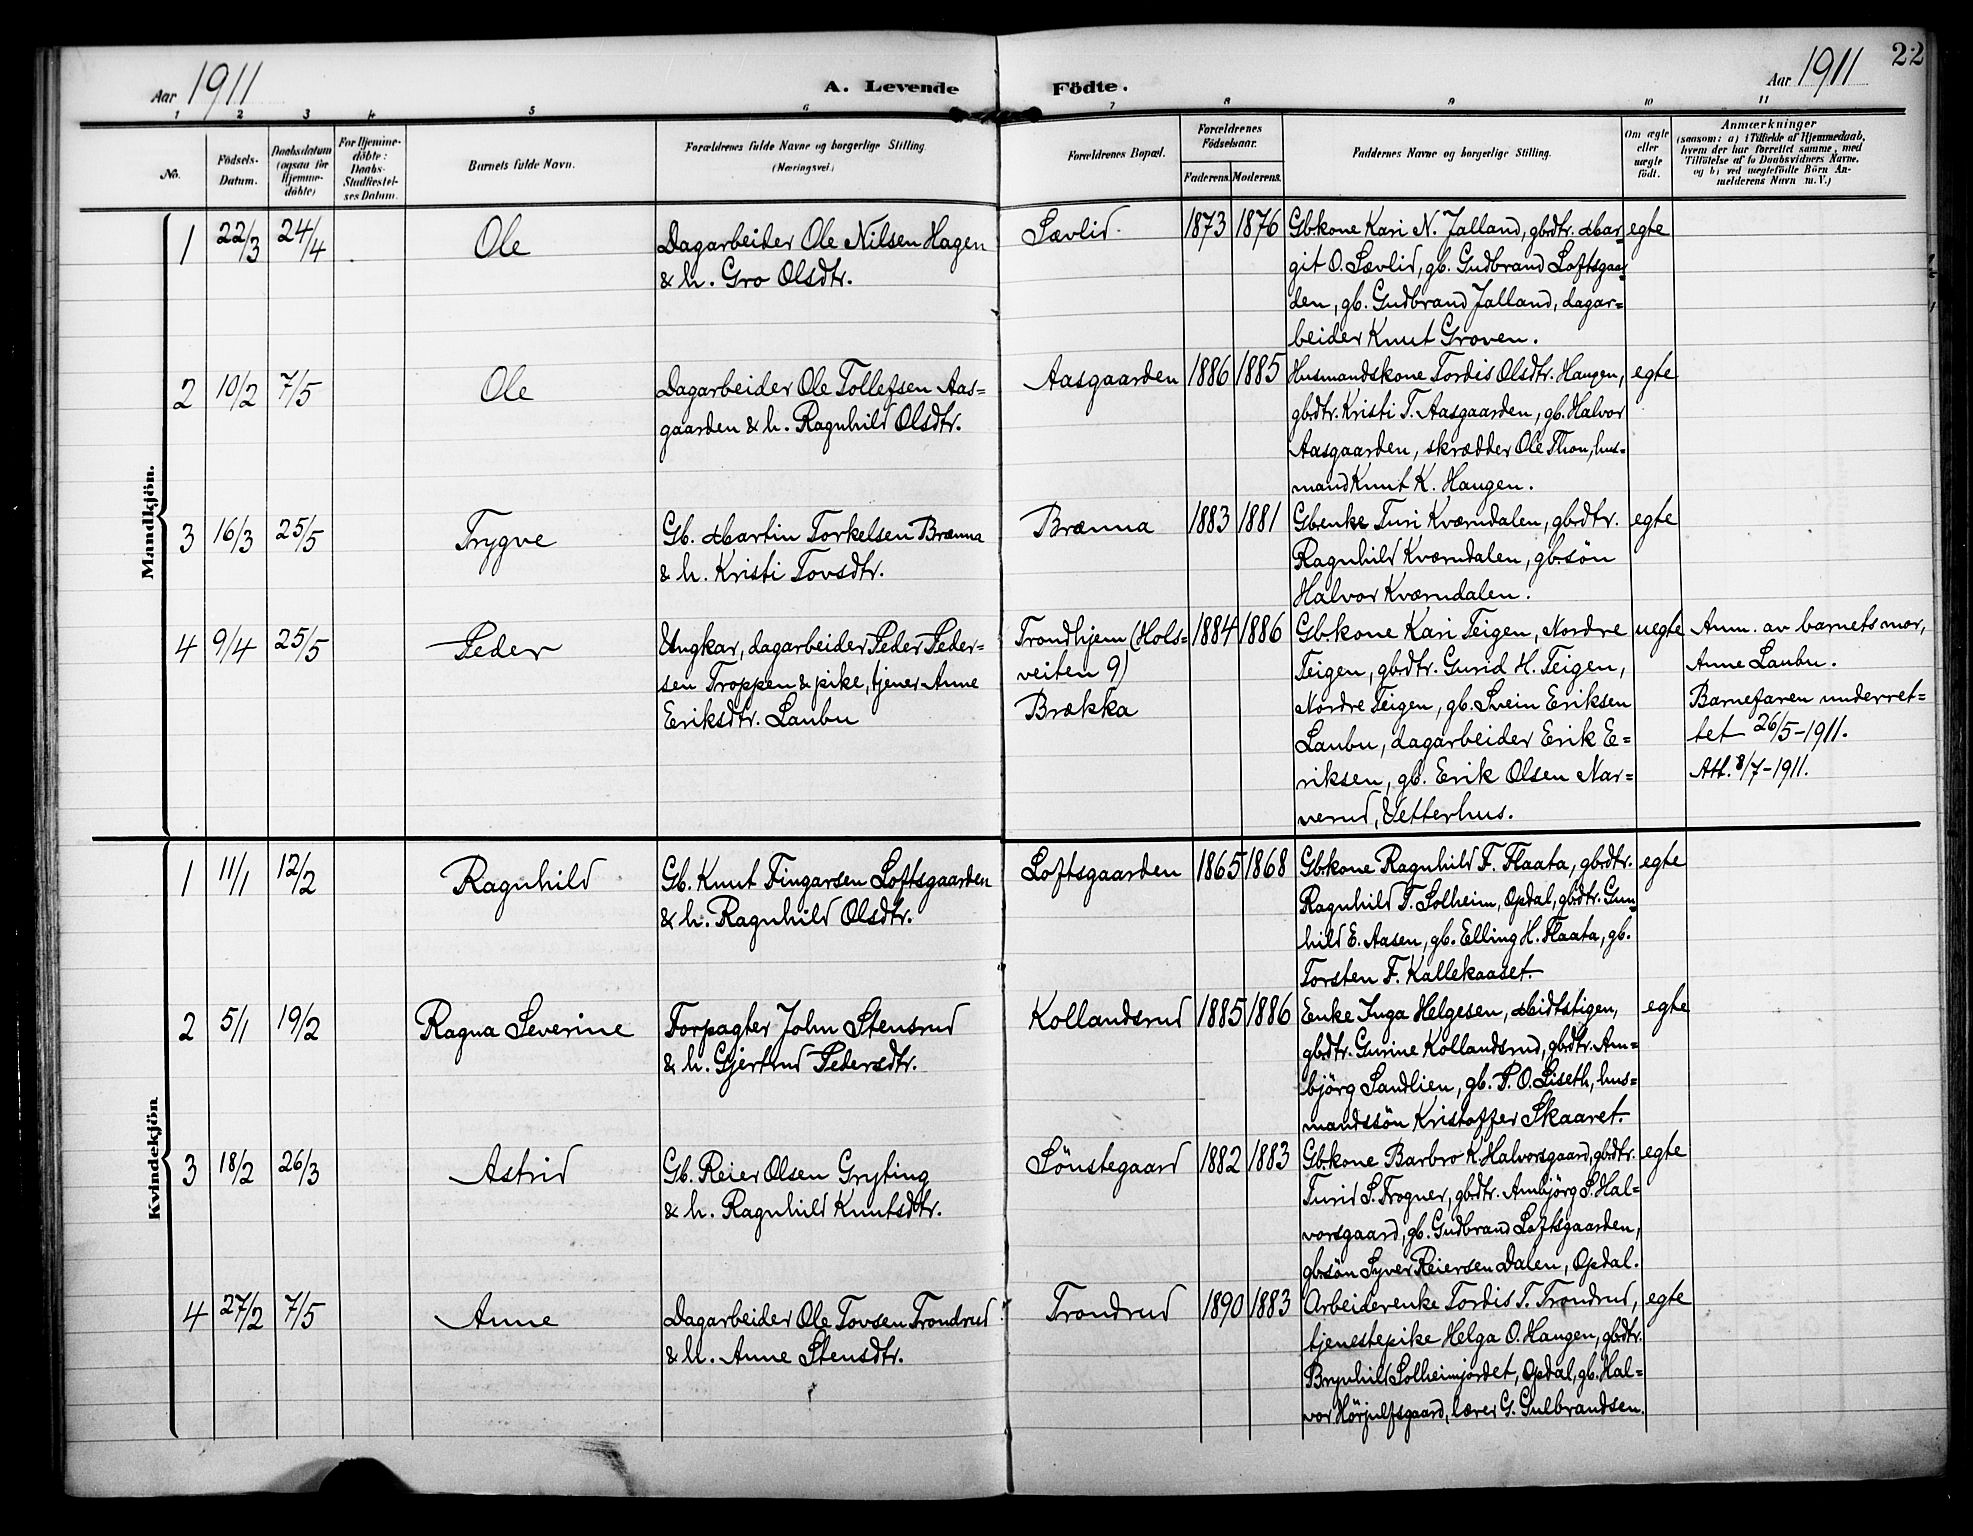 22
Aar 1911 A. Levende Födte. Aar 1911
1 2 3 4 5 6 7 8 9 10 11
No.
Födsels-
Datum.
Daabsdatum
(ogsaa for
Hjemme-
döbte)
For Hjemme-
döbte:
Daabs-
Stadfæstel-
ses Datum.
Barnets fulde Navn.
Forældrenes fulde Navne og borgerlige Stilling
(Næringsvei.)
Forældrenes Bopæl.
Forældrenes
Födselsaar.
Faderens. Moderens.
Faddernes Navne og borgerlige Stilling.
Om ægte
eller
uægte
födt.
Anmærkninger
(saasom: a) i Tilfælde af Hjemmedaab,
hvem der har forrettet samme, med
Tilföielse af to Daabsvidners Navne,
og b) ved uægtefödte Börn An-
melderens Navn m.V.)
Mandkjön.
1 22/3 24/4 Ole
Dagarbeider Ole Nilsen Hagen
& h. Gro Olsdtr.
Sævlid 1873 1876
Gbkone Kari N. Jalland, gbdtr. Mar
git O. Sævlid, gb. Gudbrand Loftsgaar
den, gb. Gudbrand Jalland, dagar=
beider Knut Groven.
egte
2 10/2 7/5 Ole
Dagarbeider Ole Tollefsen Aas=
gaarden & h. Ragnhild Olsdtr.
Aasgaarden 1886 1885
Husmandskone Tordis Olsdtr. Haugen,
gbdtr. Kristi T. Aasgaarden, gb. Halvor
Aasgaarden, skrædder Ole Thon, hus=
mand Knut K. Haugen.
egte
3 16/3 25/5 Trygve
Gb. Martin Torkelsen Brænna
& h. Kristi Tovsdtr.
Brænna 1883 1881
Gbenke Turi Kværndalen, gbdtr.
Ragnhild Kværndalen, gbsön
Halvor Kværndalen.
egte
4 9/4 25/5 Peder
Ungkar, dagarbeider Peder Peder=
sen Troppen & pike, tjener Anne
Eriksdtr. Laubu
Trondhjem (Hols=
veiten 9)
Brækka
1884 1886
Gbkone Kari Teigen, Nordre
Teigen, gbdtr. Gurid H. Teigen,
Nordre Teigen, gb. Svein Eriksen
Laubu, dagarbeider Erik E=
riksen, gb. Erik Olsen Nar=
verud, Vetterhus.
uegte
Anm. av barnets mor,
Anne Laubu.
Barnefaren underret=
tet 26/5-1911.
Att. 8/7-1911.
Kvindekjön
1 11/1 12/2 Ragnhild
Gb. Knut Fingarsen Loftsgaarden
& h. Ragnhild Olsdtr.
Loftsgaarden 1865 1868
Gbkone Ragnhild F. Flaata, gbdtr.
Ragnhild T. Solheim, Opdal, gbdtr. Gun
hild E. Aasen, gb. Elling H. Flaata, gb.
Torsten F. Kallekaaset.
egte
2 5/1 19/2 Ragna Severine
Forpagter John Stensrud
& h. Gjertrud Pedersdtr.
Kollandsrud 1885 1886
Enke Inga Helgesen, Midtstigen,
gbdtr. Gurine Kollandsrud, gbdtr. Am=
björg Sandlien, gb. P. O. Liseth, hus=
mandssön Kristoffer Skaaret.
egte
3 18/2 26/3 Astrid
Gb. Reier Olsen Gryting
& h. Ragnhild Knutsdtr.
Sönstegaard 1882 1883
Gbkone Barbro K. Halvorsgaard, gbdtr.
Turid S. Frogner, gbdtr. Ambjörg S. Hal=
vorsgaard, gb. Gudbrand Loftsgaarden,
gbsön Syver Reiersen Dalen, Opdal.
egte
4 27/2 7/5 Anne
Dagarbeider Ole Tovsen Trondrud
& h. Anne Stensdtr.
Trondrud 1890 1883
Arbeiderenke Tordis T. Trondrud,
tjenestepike Helga O. Haugen, gbdtr.
Brynhild Solheimjordet, Opdal, gb. Hal=
vor Hörjulfsgaard, lærer G. Gulbrandsen.
egte